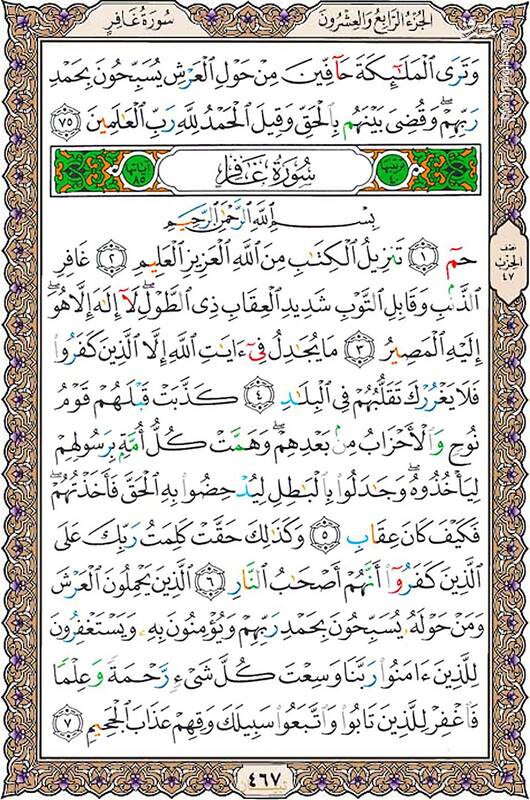 سُورَةُ غَافِرٍ الجُزْءُ الرَّابِعُ وَالعِشْرُونَ
وَتَرَى ٱلْمَلَٰٓئِكَةَ حَآفِّينَ مِنْ حَوْلِ ٱلْعَرْشِ يُسَبِّحُونَ بِحَمْدِ
رَبِّهِمْۖ وَقُضِىَ بَيْنَهُم بِٱلْحَقِّ وَقِيلَ ٱلْحَمْدُ لِلَّهِ رَبِّ ٱلْعَٰلَمِينَ ٧٥
سُورَةُ غَافِرٍ آياتها ٨٥
بِسْمِ ٱللَّهِ ٱلرَّحْمَٰنِ ٱلرَّحِيمِ
حمٓ ١ تَنزِيلُ ٱلْكِتَٰبِ مِنَ ٱللَّهِ ٱلْعَزِيزِ ٱلْعَلِيمِ ٢ غَافِرِ
ٱلذَّنۢبِ وَقَابِلِ ٱلتَّوْبِ شَدِيدِ ٱلْعِقَابِ ذِى ٱلطَّوْلِۖ لَآ إِلَٰهَ إِلَّا هُوَۖ
إِلَيْهِ ٱلْمَصِيرُ ٣ مَا يُجَٰدِلُ فِىٓ ءَايَٰتِ ٱللَّهِ إِلَّا ٱلَّذِينَ كَفَرُوا۟
فَلَا يَغْرُرْكَ تَقَلُّبُهُمْ فِى ٱلْبِلَٰدِ ٤ كَذَّبَتْ قَبْلَهُمْ قَوْمُ
نُوحٍ وَٱلْأَحْزَابُ مِنۢ بَعْدِهِمْۖ وَهَمَّتْ كُلُّ أُمَّةٍۭ بِرَسُولِهِمْ
لِيَأْخُذُوهُۖ وَجَٰدَلُوا۟ بِٱلْبَٰطِلِ لِيُدْحِضُوا۟ بِهِ ٱلْحَقَّ فَأَخَذْتُهُمْۖ
فَكَيْفَ كَانَ عِقَابِ ٥ وَكَذَٰلِكَ حَقَّتْ كَلِمَتُ رَبِّكَ عَلَى
ٱلَّذِينَ كَفَرُوٓا۟ أَنَّهُمْ أَصْحَٰبُ ٱلنَّارِ ٦ ٱلَّذِينَ يَحْمِلُونَ ٱلْعَرْشَ
وَمَنْ حَوْلَهُۥ يُسَبِّحُونَ بِحَمْدِ رَبِّهِمْ وَيُؤْمِنُونَ بِهِۦ وَيَسْتَغْفِرُونَ
لِلَّذِينَ ءَامَنُوا۟ رَبَّنَا وَسِعْتَ كُلَّ شَىْءٍ رَّحْمَةً وَعِلْمًا
فَٱغْفِرْ لِلَّذِينَ تَابُوا۟ وَٱتَّبَعُوا۟ سَبِيلَكَ وَقِهِمْ عَذَابَ ٱلْجَحِيمِ ٧
نصف
الحزب
٤٧
٤٦٧